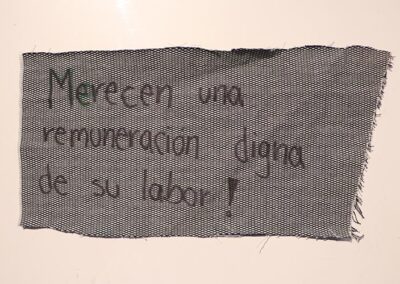 Merecen una
remuneración digna
de su labor!